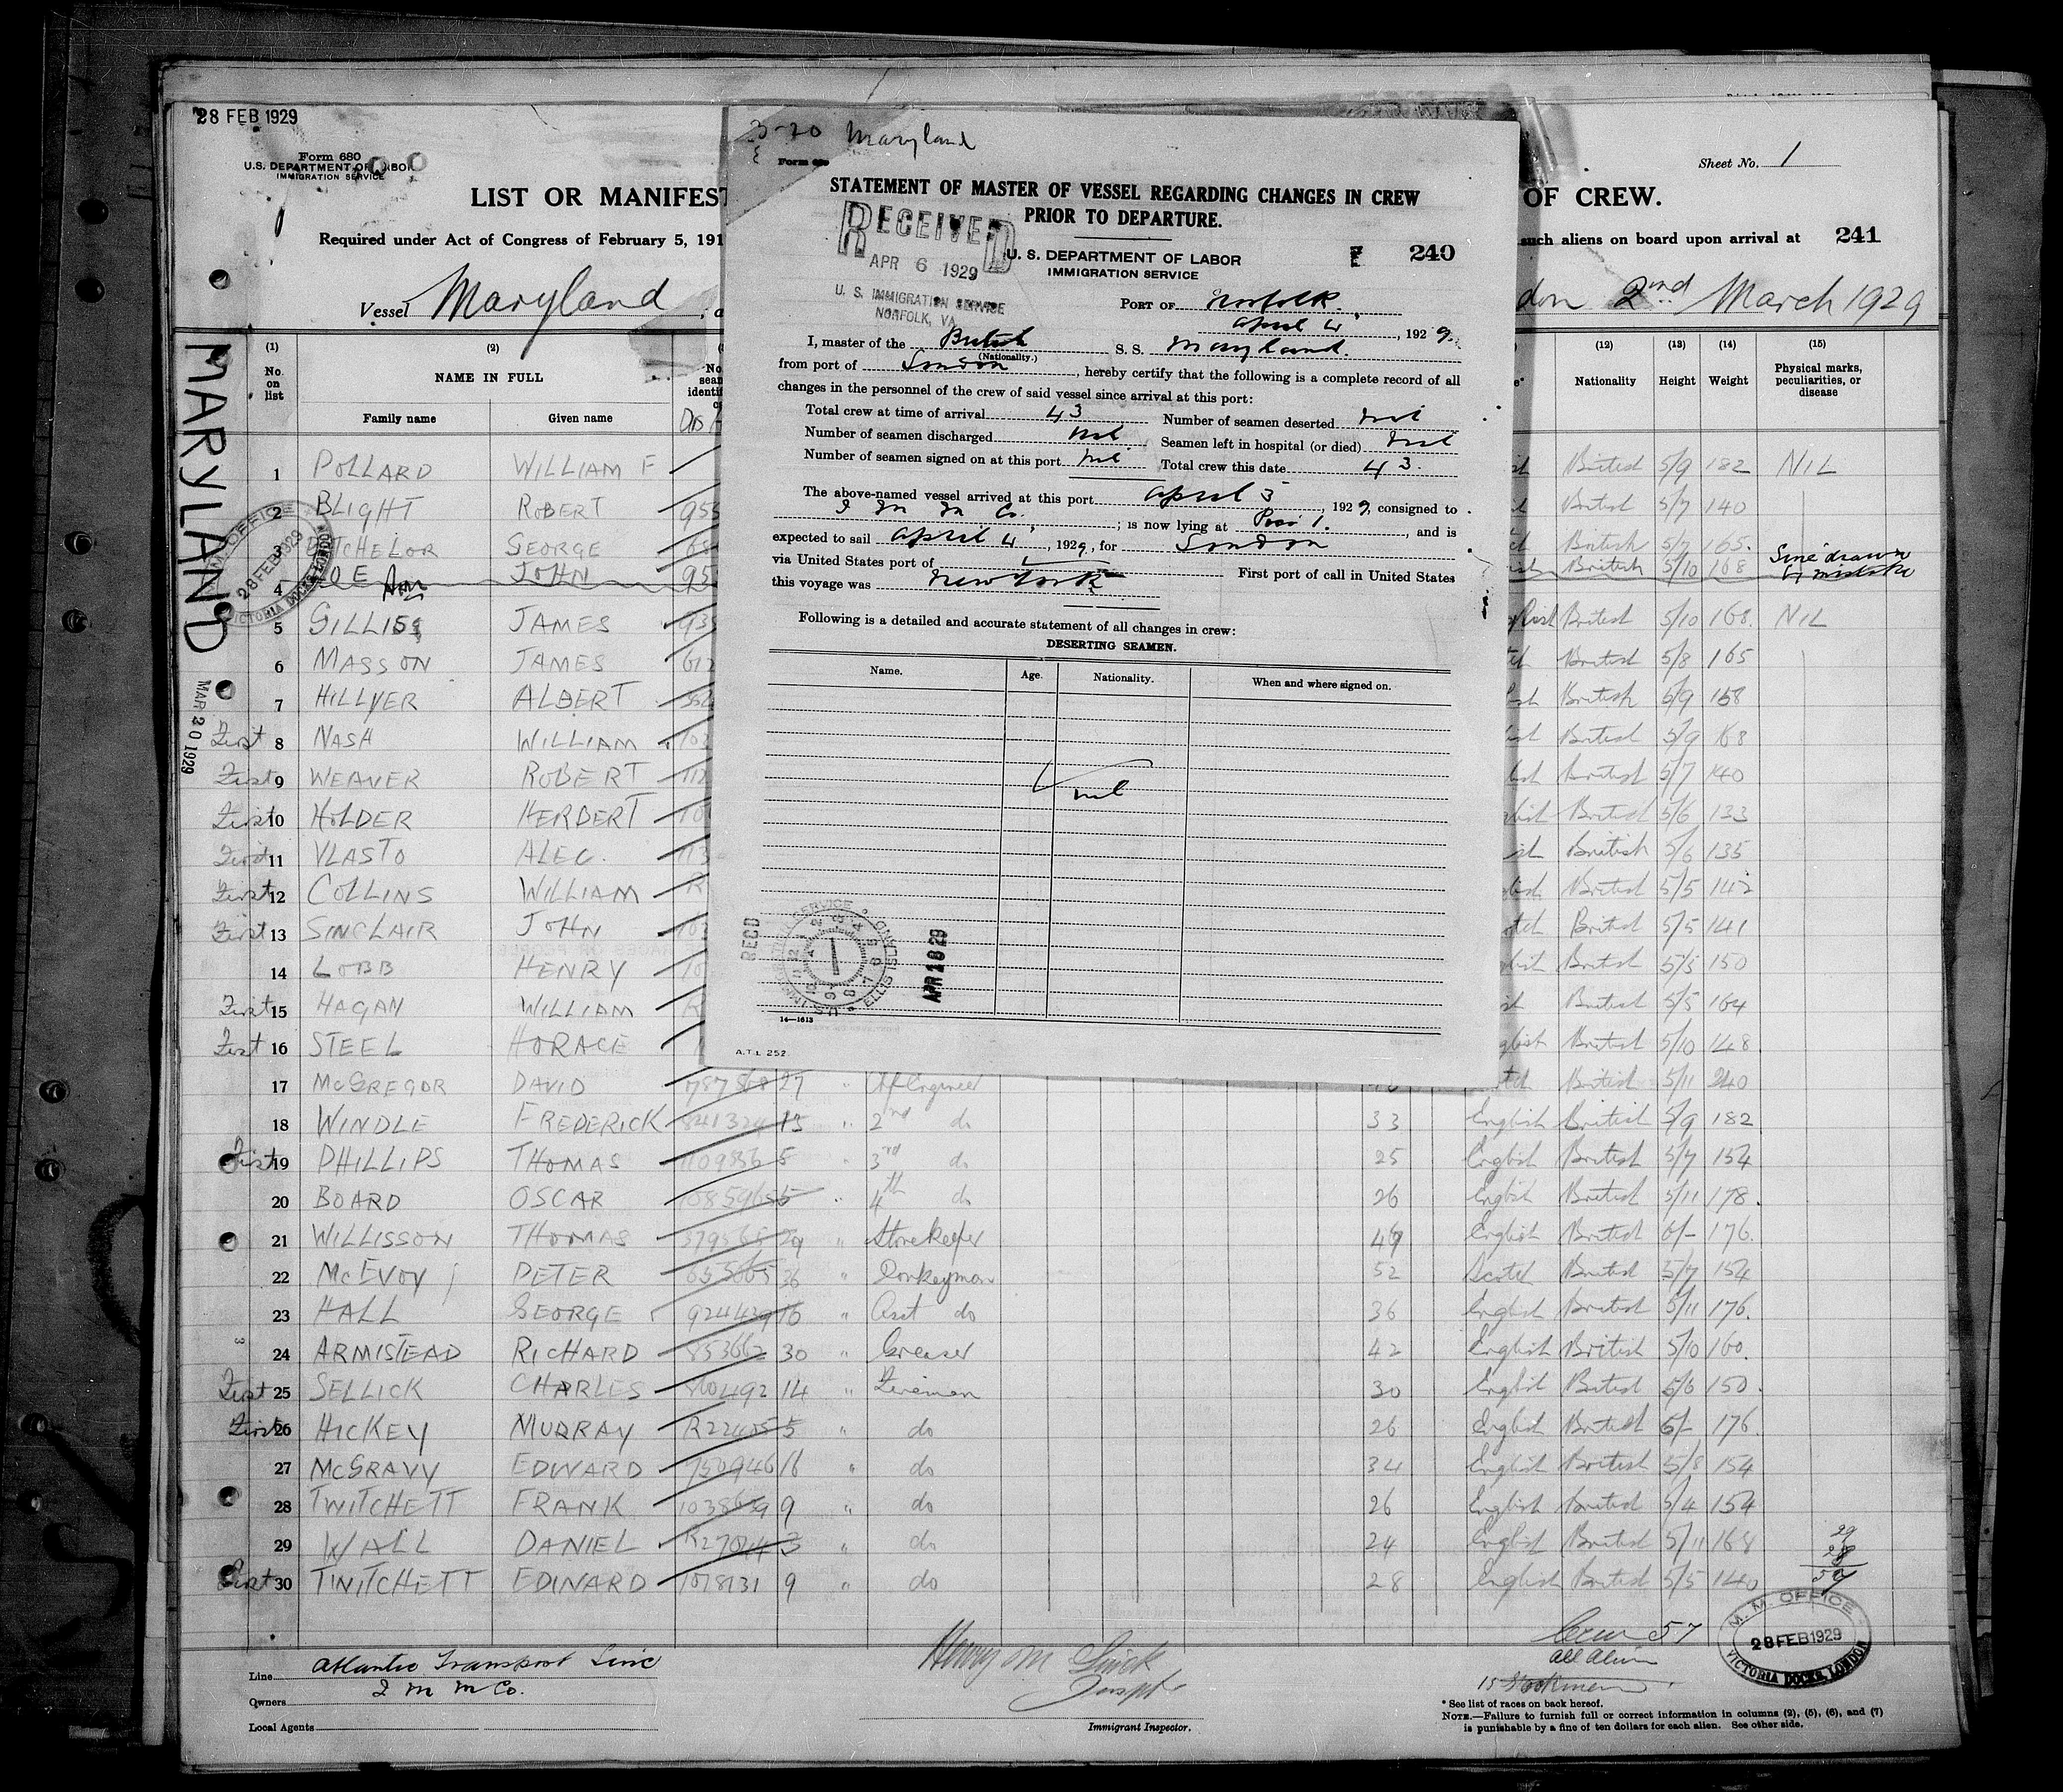 28 FEB 1929
Form 680
U.S. DEPARTMENT OF LABOR
IMMIGRATION SERVICE
LIST OR MANIFEST
OF CREW.
Sheet No. 1
Required under Act of Congress of February 5, 191
such aliens on board upon arrival at 241
Vessel Maryland
don 2nd March 1929
MARYLAND
MAR 20 1929
3-20 Maryland
Form
STATEMENT OF MASTER OF VESSEL REGARDING CHANGES IN CREW
PRIOR TO DEPARTURE.
RECEIVED
APR 6 1929
U. S. IMMIGRATION SERVICE
NORFOLK, VA
U. S. DEPARTMENT OF LABOR
IMMIGRATION SERVICE
240
PORT OF Norfolk.
April 4, 1929.
I, master of the British S. S. Maryland.
(Nationality.)
from port of London, hereby certify that the following is a complete record of all
changes in the personnel of the crew of said vessel since arrival at this port:
Total crew at time of arrival 43 Number of seamen deserted nil
Number of seamen discharged nil Seamen left in hospital (or died) nil
Number of seamen signed on at this port nil Total crew this date 43.
The above-named vessel arrived at this port April 3, 1929, consigned to
I M M Co.; is now lying at Pier 1., and is
expected to sail April 4, 1929, for London
via United States port of First port of call in United States
this voyage was New York
Following is a detailed and accurate statement of all changes in crew:
DESERTING SEAMEN.
Name. Age. Nationality. When and where signed on.
nil
RECD
APR 18 29
ELLIS ISLAND
14—1613
A.T.L. 252
(1) (2) (12) (13) (14) (15)
No. on list
NAME IN FULL
Family name Given name
Nationality Height Weight Physical marks, peculiarities, or disease
1 POLLARD WILLIAM F British 5/9 182 NIL
2 BLIGHT ROBERT British 5/7 140
3 BATCHELOR GEORGE British 5/7 165.
4 JOHN British 5/10 168 Line drawn by mistake
5 GILLIES JAMES British 5/10 168. NIL
6 MASSON JAMES 612 British 5/8 165
7 HILLYER ALBERT British 5/9 158
First 8 NASH WILLIAM British 5/9 168
First 9 WEAVER ROBERT British 5/7 140
First 10 HOLDER HERBERT British 5/6 133
First 11 VLASTO ALEC. British 5/6 135
First 12 COLLINS WILLIAM British 5/5 142
First 13 SINCLAIR JOHN British 5/5 141
14 LOBB HENRY British 5/5 150
First 15 HAGAN WILLIAM British 5/5 164
First 16 STEEL HORACE British 5/10 148
17 McGREGOR DAVID 787868 27 " Chf Engineer British 5/11 240
18 WINDLE FREDERICK 841324 15 " 2nd do 33 English British 5/9 182
First 19 PHILLIPS THOMAS 8 " 3rd do 25 English British 5/7 154
20 BOARD OSCAR " 4th do 26 English British 5/11 178.
21 WILLISSON THOMAS 29 " Storekeeper 49 English British 6/- 176.
22 McEVOY PETER 36 " Donkeyman 52 Scotch British 5/7 154
23 HALL GEORGE 924439 16 " Asst do 36 English British 5/11 176.
24 ARMISTEAD RICHARD 853662 30 " Greaser 42 English British 5/10 160.
First 25 SELLICK CHARLES 860492 14 " Fireman 30 English British 5/6 150.
First 26 HICKEY MURRAY R22405 5 " do 26 English British 6/- 176.
27 McGRAVY EDWARD 750946 16 " do 34 English British 5/8 154
28 TWITCHETT FRANK 9 " do 26 English British 5/4 154
29 WALL DANIEL 3 " do 24 English British 5/11 168
First 30 TWITCHETT EDWARD 1078131 9 " do 28 English British 5/5 140
29
28
57
Crew 57
all alien
15 Stockmen
M. M. OFFICE
28 FEB 1929
VICTORIA DOCKS, LONDON
Line Atlantic Transport Line
Owners I M M Co.
Local Agents
Immigrant Inspector.
* See list of races on back hereof.
NOTE.—Failure to furnish full or correct information in columns (2), (5), (6), and (7)
is punishable by a fine of ten dollars for each alien. See other side.